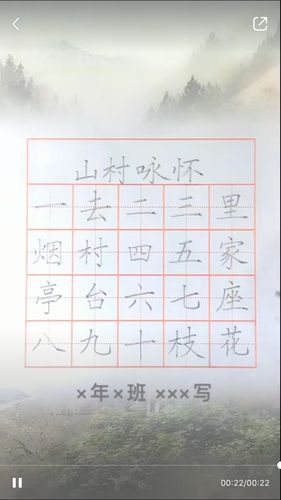 山村咏怀
一去二三里
烟村四五家
亭台六七座
八九十枝花
×年×班 ×××写
00:22/00:22